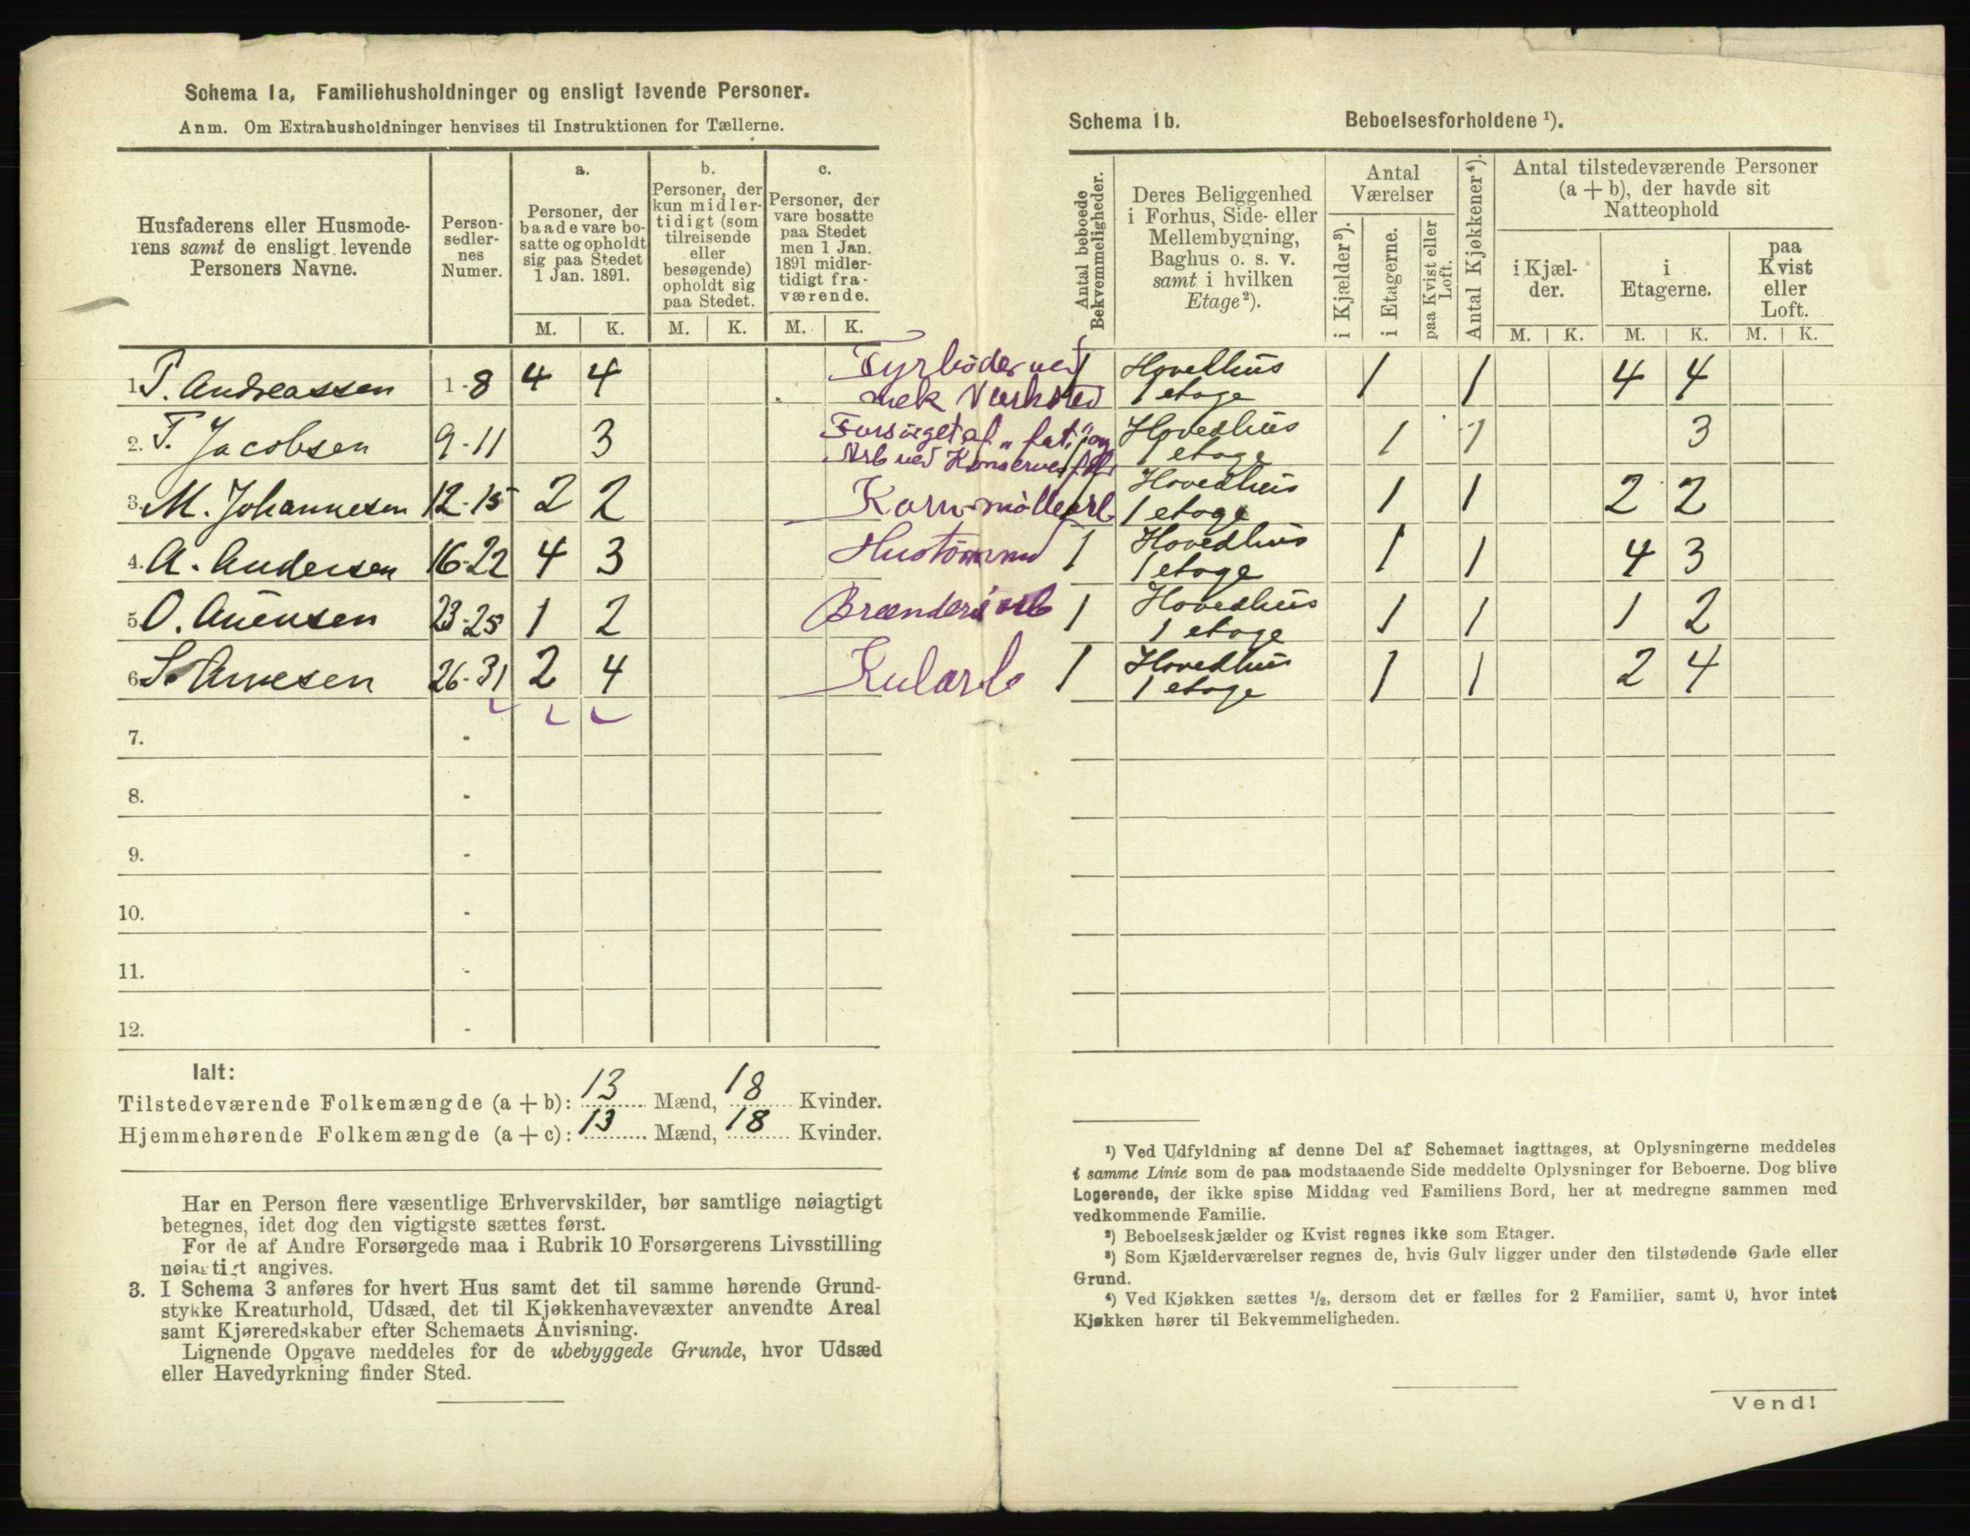 Schema 1a, Familiehusholdninger og ensligt levende Personer.
Anm. Om Extrahusholdninger henvises til Instruktionen for Tællerne.
Husfaderens eller Husmoderens samt de ensligt levende Personers Navne.
Personsedlernes Numer.
a. Personer, der baade vare bosatte og opholdt sig paa Stedet 1 Jan. 1891.
b. Personer, der kun midlertidigt (som tilreisende eller besøgende) opholdt sig paa Stedet.
c. Personer, der vare bosatte paa Stedet men 1 Jan. 1891 midlertidigt fraværende.
M. K. M. K. M. K.
1. P. Andreassen 1-8 4 4 Fyrbøder ved mek Værksted
2. T. Jacobsen 9-11 3 Forsørget af "fat", og Arb ved
3. M. Johannesen 12-15 2 2 Kornmøllearb
4. A. Andersen 16-22 4 3 Hustømmm
5. O. Auensen 23-25 1 2 Brænderiarb
6. S. Arnesen 26-31 2 4 Kularb
7. -
8. -
9. -
10. -
11. -
12. -
Ialt:
Tilstedeværende Folkemængde (a + b): 13 Mænd, 18 Kvinder.
Hjemmehørende Folkemængde (a + c): 13 Mænd, 18 Kvinder.
Har en Person flere væsentlige Erhvervskilder, bør samtlige nøiagtigt
betegnes, idet dog den vigtigste sættes først.
For de af Andre Forsørgede maa i Rubrik 10 Forsørgerens Livsstilling
nøiagtigt angives.
3. I Schema 3 anføres for hvert Hus samt det til samme hørende Grund-
stykke Kreaturhold, Udsæd, det til Kjøkkenhavevæxter anvendte Areal
samt Kjøreredskaber efter Schemaets Anvisning.
Lignende Opgave meddeles for de ubebyggede Grunde, hvor Udsæd
eller Havedyrkning finder Sted.
Schema 1b. Beboelsesforholdene ¹).
Antal beboede Bekvemmeligheder.
Deres Beliggenhed i Forhus, Side- eller Mellembygning, Baghus o. s. v. samt i hvilken Etage²).
Antal Værelser
i Kjælder³).
i Etagerne.
paa Kvist eller Loft.
Antal Kjøkkener⁴).
Antal tilstedeværende Personer (a + b), der havde sit Natteophold
i Kjælder.
i Etagerne.
paa Kvist eller Loft.
M. K. M. K. M. K.
1 Hovedhus 1 etage 1 1 4 4
1 Hovedhus 1 etage 1 1 3
1 Hovedhus 1 etage 1 1 2 2
1 Hovedhus 1 etage 1 1 4 3
1 Hovedhus 1 etage 1 1 1 2
1 Hovedhus 1 etage 1 1 2 4
¹) Ved Udfyldning af denne Del af Schemaet iagttages, at Oplysningerne meddeles
i samme Linie som de paa modstaaende Side meddelte Oplysninger for Beboerne. Dog blive
Logerende, der ikke spise Middag ved Familiens Bord, her at medregne sammen med
vedkommende Familie.
²) Beboelseskjælder og Kvist regnes ikke som Etager.
³) Som Kjælderværelser regnes de, hvis Gulv ligger under den tilstødende Gade eller
Grund.
⁴) Ved Kjøkken sættes ½, dersom det er fælles for 2 Familier, samt 0, hvor intet
Kjøkken hører til Bekvemmeligheden.
Vend!